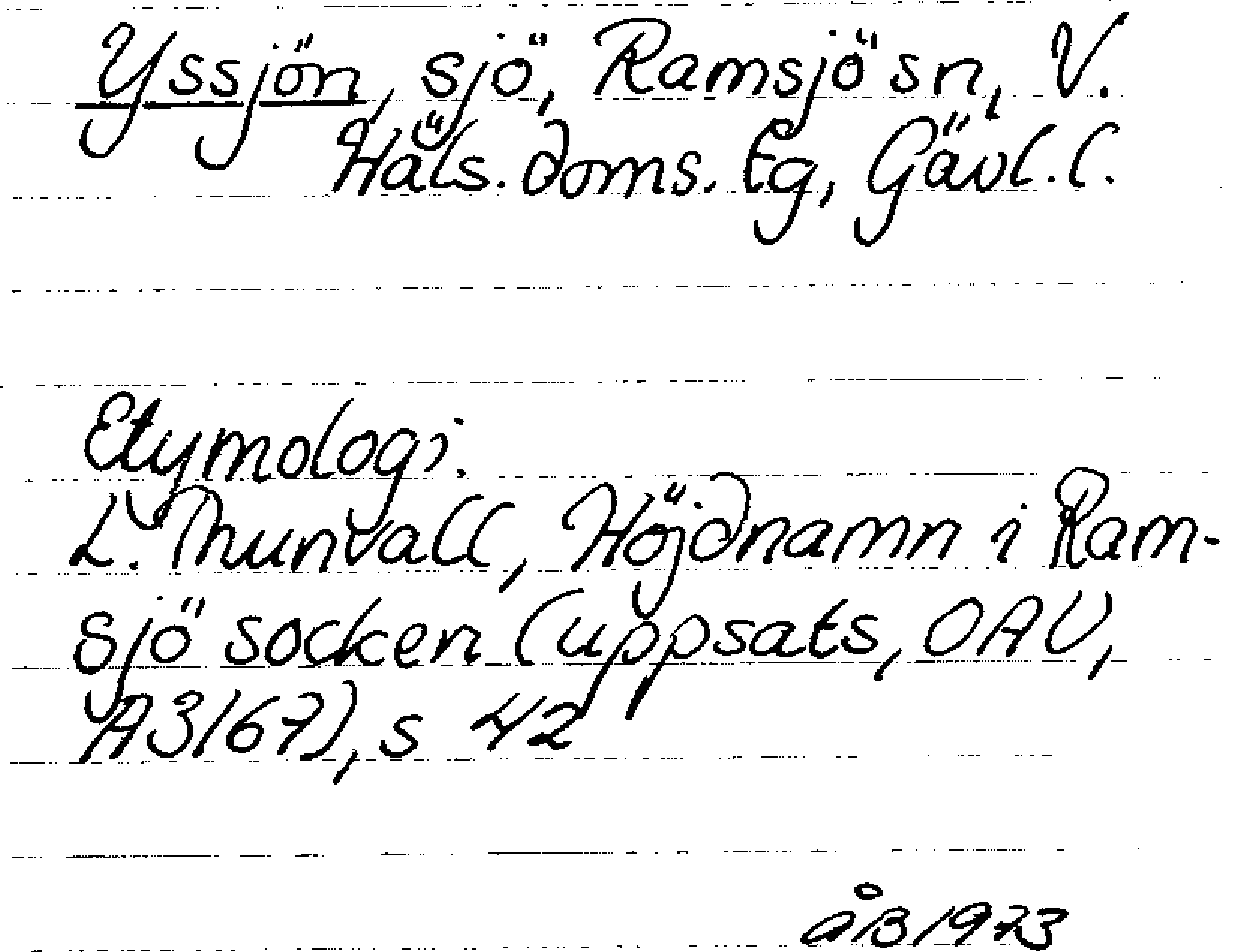 Yssjön, sjö, Ramsjö sn, V.
Häls. doms. tg, Gävl. l.
Etymologi.
L. Thunvall, Höjdnamn i Ram-
sjö socken (uppsats, OAU,
A3167), s 42
ÅB 1973